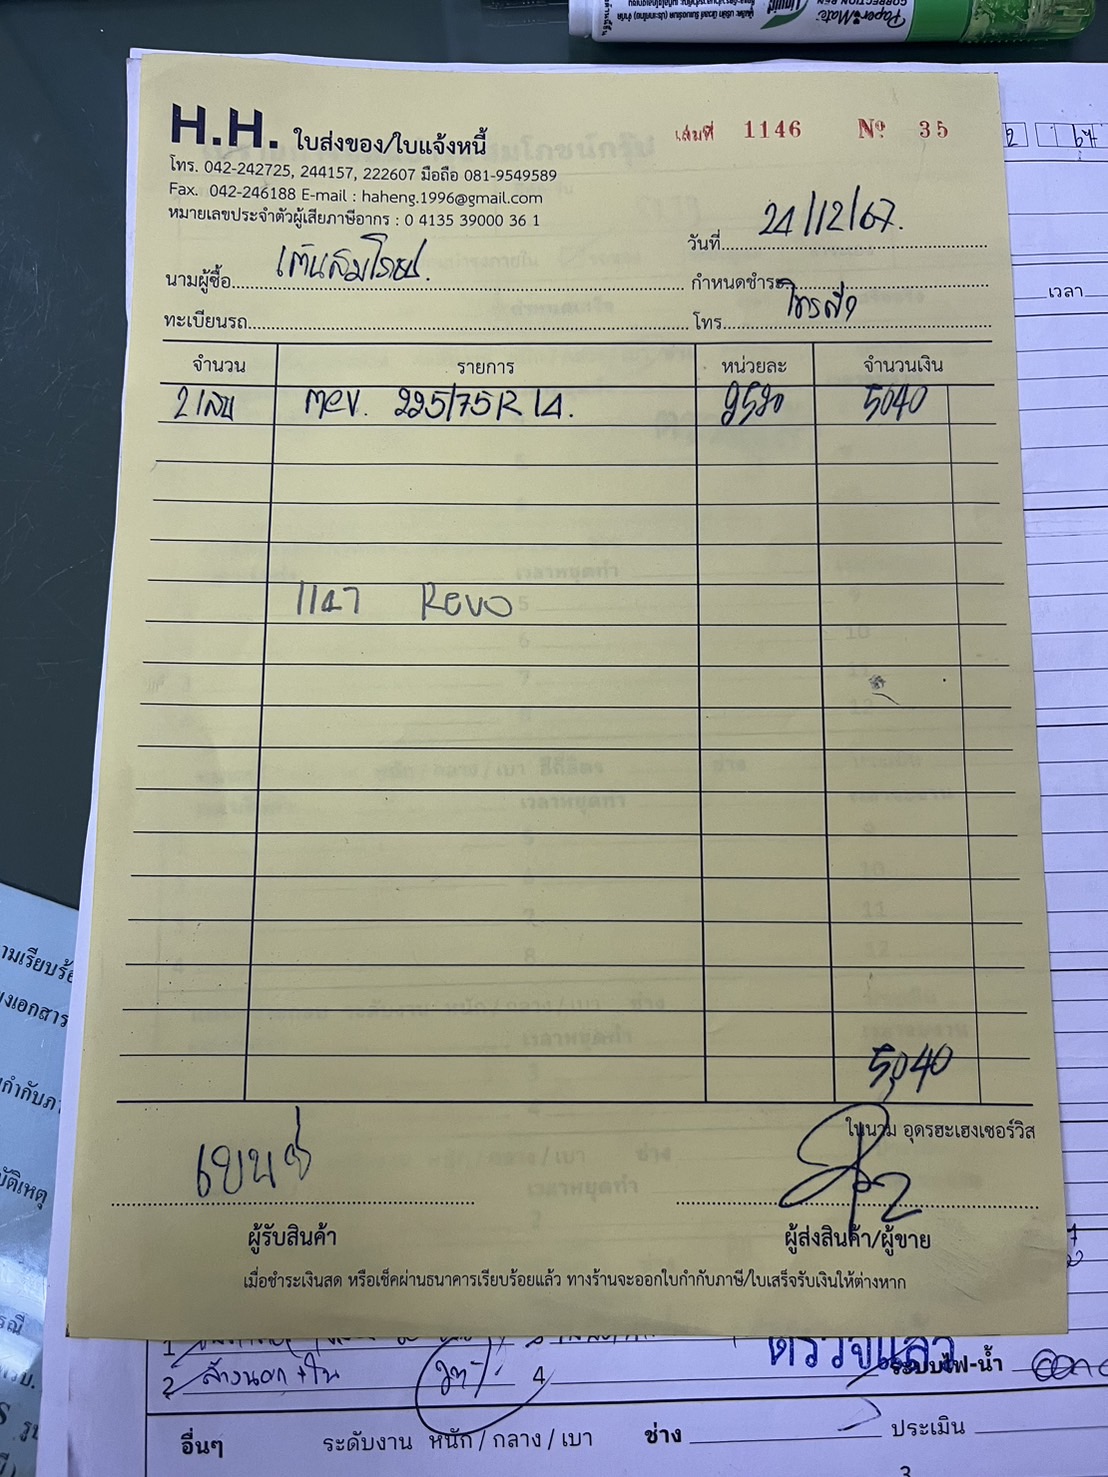 Paper Mate
Liquid
H.H. ใบส่งของ/ใบแจ้งหนี้
เล่มที่ 1146 Nº 35
โทร. 042-242725, 244157, 222607 มือถือ 081-9549589
Fax. 042-246188 E-mail : haheng.1996@gmail.com
หมายเลขประจำตัวผู้เสียภาษีอากร : 0 4135 39000 36 1
วันที่ 24/12/67.
นามผู้ซื้อ
กำหนดชำระ
ทะเบียนรถ
โทร.
เวลา
จำนวน รายการ หน่วยละ จำนวนเงิน
2 เส้น 225/75R14. 2520 5040
1147 Revo
5,040
ในนาม อุดรฮะเฮงเซอร์วิส
เบนซ์
ผู้รับสินค้า
ผู้ส่งสินค้า/ผู้ขาย
เมื่อชำระเงินสด หรือเช็คผ่านธนาคารเรียบร้อยแล้ว ทางร้านจะออกใบกำกับภาษี/ใบเสร็จรับเงินให้ต่างหาก
ตรวจแล้ว
2 ล้างนอก + ใน 4 ระบบไฟ-น้ำ
อื่นๆ ระดับงาน หนัก / กลาง / เบา ช่าง ประเมิน
3